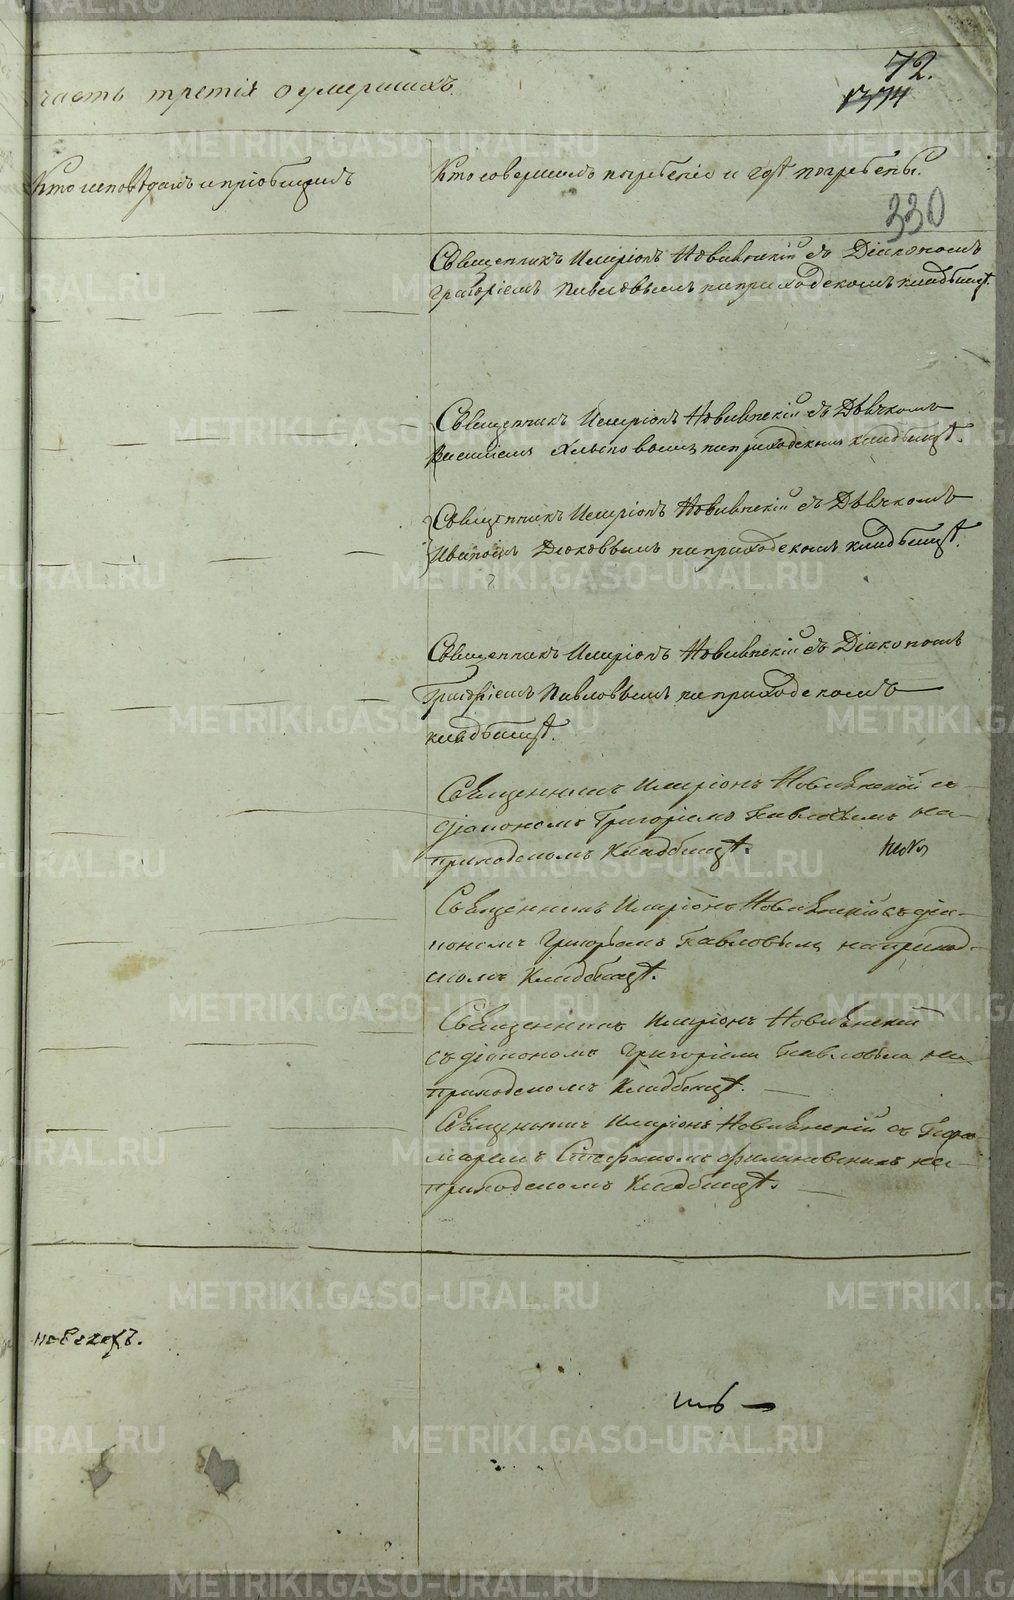 72.
1374
часть третія о умершихъ.
Кто исповѣдалъ и пріобщилъ
Кто совершалъ погребеніе и гдѣ погребены.
330
Священникъ Иларіонъ Новинскій съ Діакономъ
Григоріемъ Павловымъ на приходскомъ кладбищѣ.
Священникъ Иларіонъ Новинскій съ Дьячкомъ
Василіемъ на приходскомъ кладбищѣ.
Священникъ Иларіонъ Новинскій съ Дьячкомъ
Иваномъ на приходскомъ кладбищѣ.
Священникъ Иларіонъ Новинскій съ Діакономъ
Григоріемъ Павловымъ на приходскомъ
кладбищѣ.
Священникъ Иларіонъ Новинскій съ
діакономъ Григоріемъ Павловымъ на
приходскомъ кладбищѣ.
Священникъ Иларіонъ Новинскій съ діа-
кономъ Григоріемъ Павловымъ на приход-
скомъ кладбищѣ.
Священникъ Иларіонъ Новинскій
съ діакономъ Григоріемъ Павловымъ на
приходскомъ кладбищѣ.
Священникъ Иларіонъ Новинскій съ Поно-
маремъ Стефаномъ на
приходскомъ кладбищѣ.
METRIKI.GASO-URAL.RU